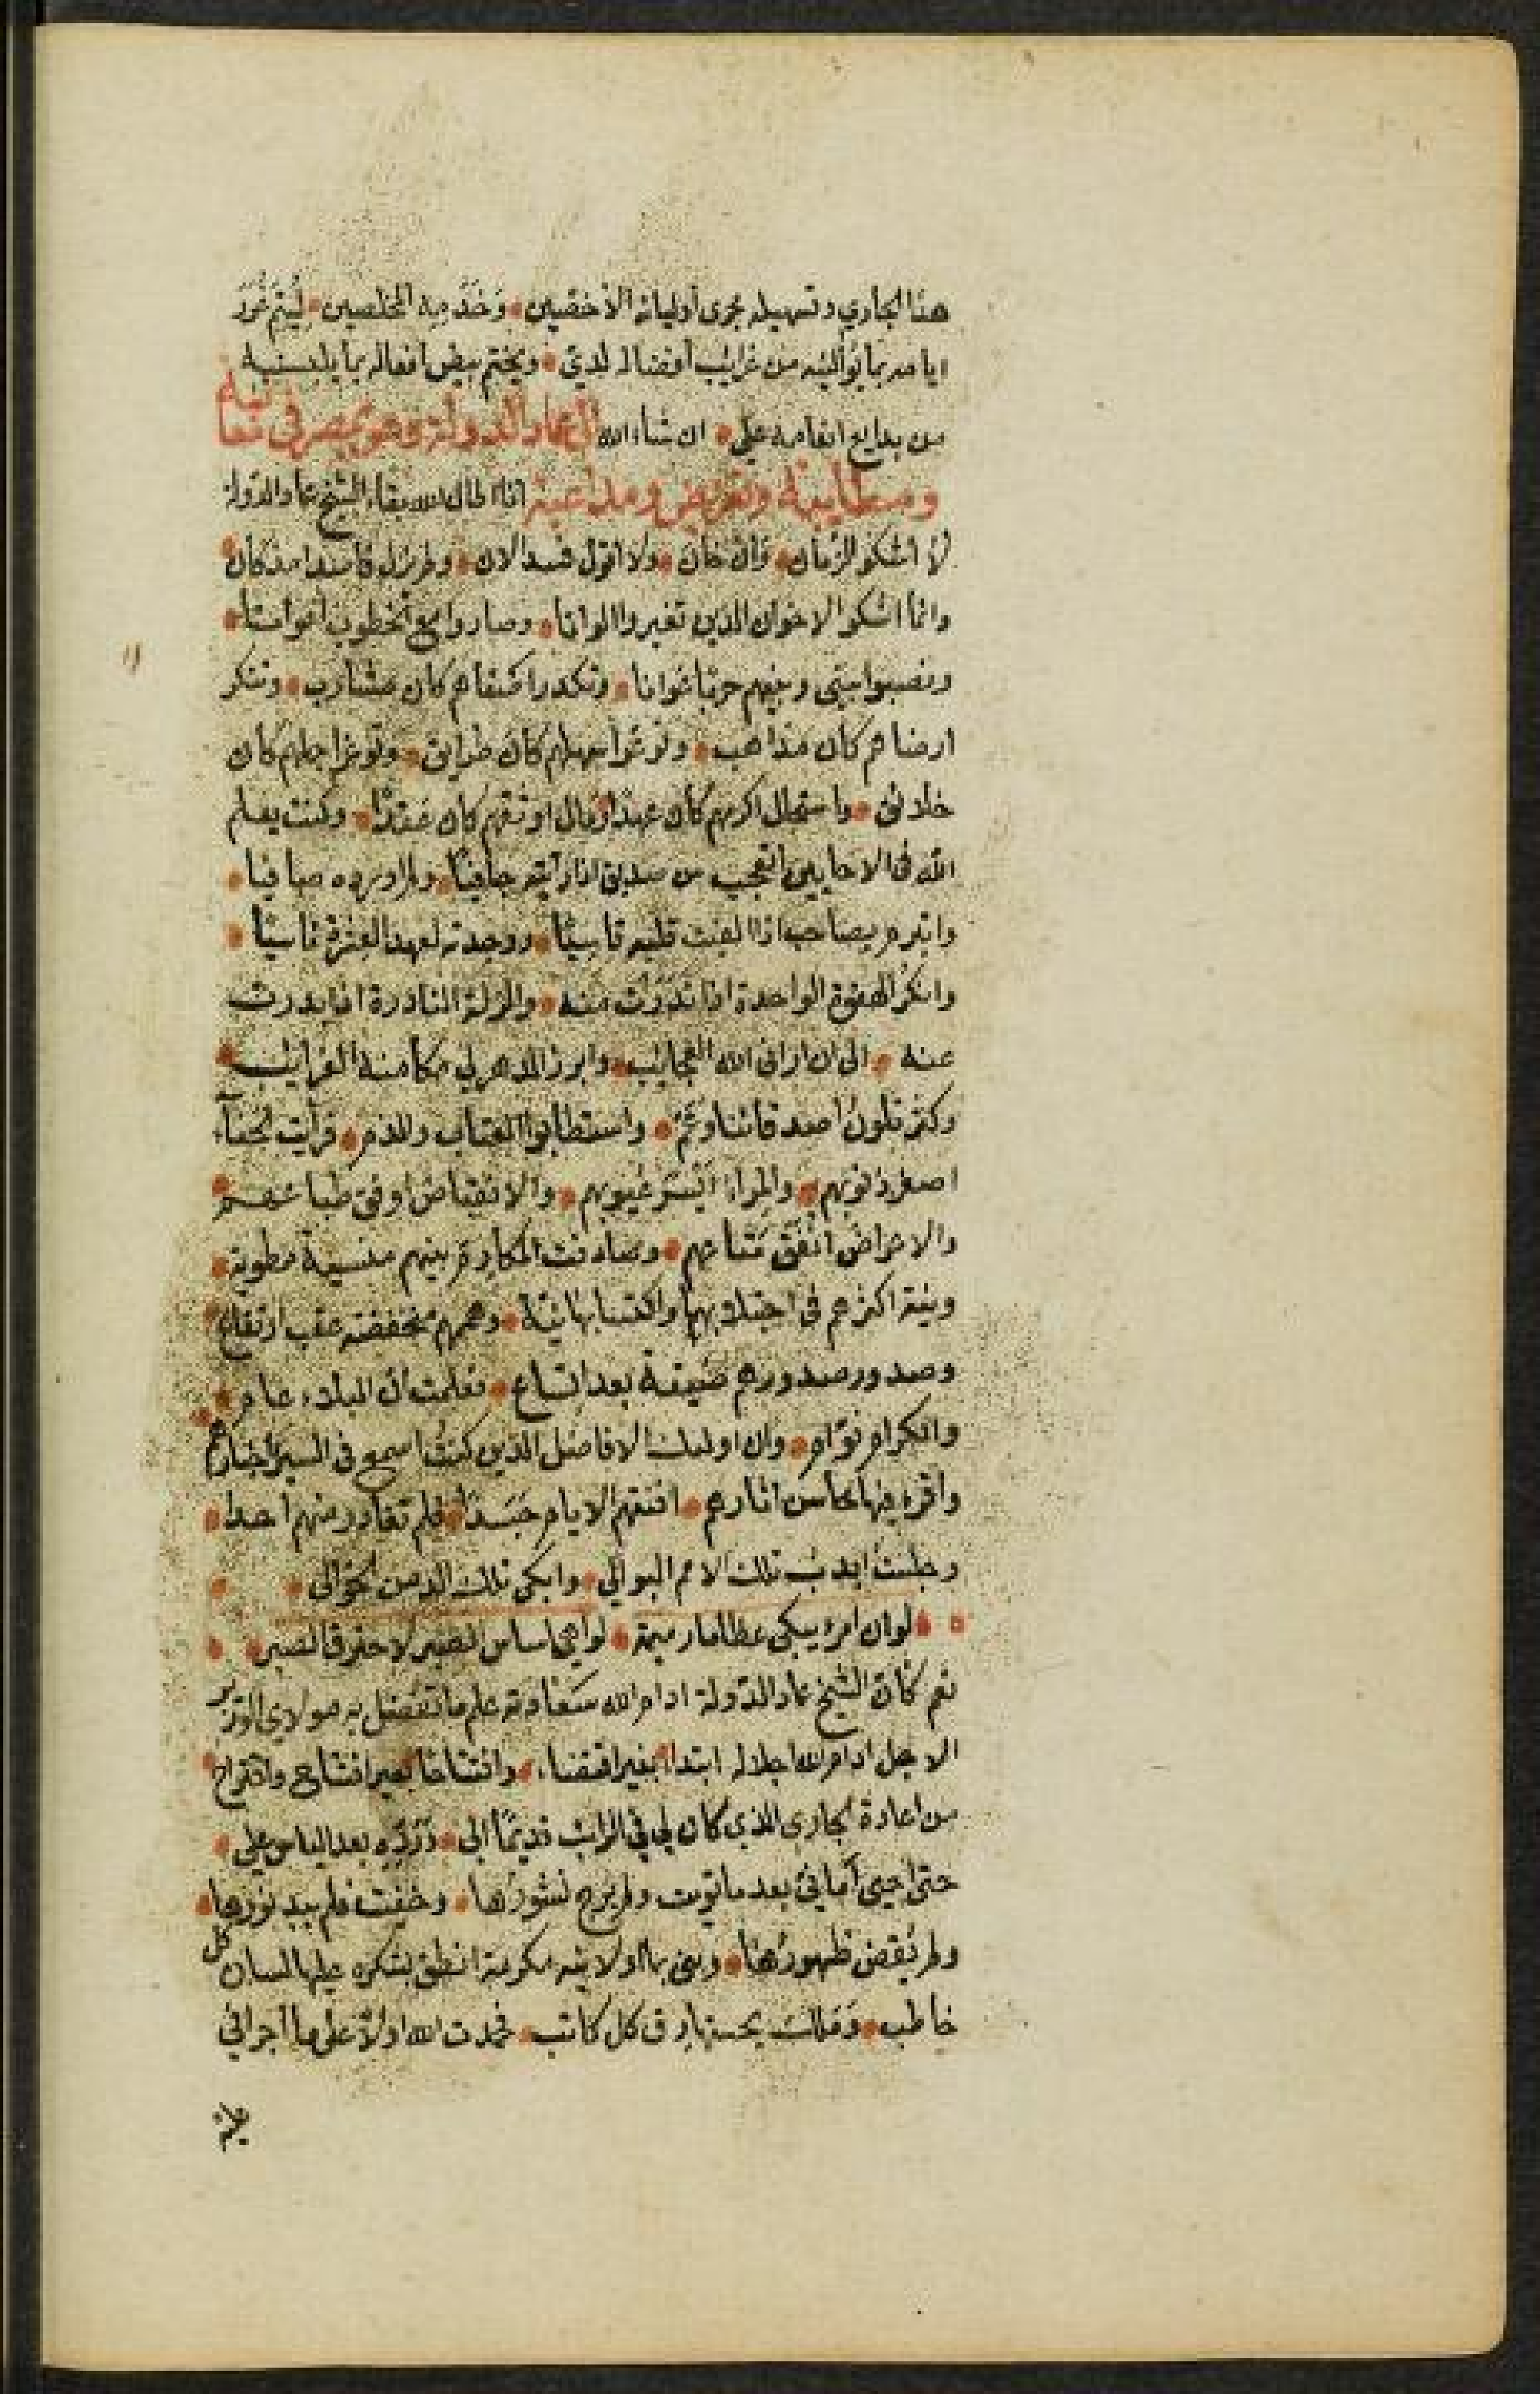 هذا الجاري وتسهيله مجرى أوليائه الأخصين * وخدمه المخلصين * ليتم غرر
ايامه بما يواليه من غرايب أفضاله لديّ * ويختم ببيض افعاله بما يلبسنيه
من بدايع انعامه عليّ * ان شاء الله الى عماد الدولة وهو بمصر فى معاتبة
ومطايبة وتعريض ومداعبة انا اطال الله بقاء الشيخ عماد الدولة
لا اشكو الزمان * فان خان * ولا اقول فسد الان * ولم يزل فاسدا مذ كان *
وانما اشكو الاخوان الذين تغيروا الوانا * وصاروا مع الخطوب اعوانا *
ونصبوا بيني وبينهم حربا عوانا * وتكدر اصفاهم كان مشارب * وتنكر
ارضاهم كان مذاهب * وتوعر اسهلهم كان طرايق * وتوغر اجملهم كان
خلائق * واستحال اكرمهم كان عهدا * وزال اوثقهم كان عقدا * وكنت يعلم
الله في الاحايين اتعجب من صديق اذا رأيته جافيا * ولم ار وده صافيا *
واتبرم بصاحب اذا الفيت قلبه قاسيا * ووجدته لعهد العشرة ناسيا *
وانكر الهفوة الواحدة اذا ندرت منه * والزلة النادرة اذا بدرت
عنه * الى ان اراني الله العجايب * وابرز الدهر لي مكامنه الغرايب *
وكثر تلون اصدقائنا وعمّ * واستطابوا العتاب والذم * فرأيت الجفاء
اصغر ذنوبهم * والمراء ايسر عيوبهم * والانقباض اوفق طباعهم *
والاعراض انفق متاعهم * وصادفت المكارم بينهم منسية مطوية *
ونية اكثرهم في اجتلابها واكتسابها نية * وهممهم منخفضة عقب ارتفاع *
وصدور صدورهم ضيقة بعد اتساع * فعلمت ان البلاء عام *
والكرام نوّام * وان اولئك الافاضل الذين كنت اسمع في السير اخبارهم *
واقرء فيها محاسن اثارهم * افنتهم الايام حسدا * فلم تغادر منهم احدا *
وجلست اندب تلك الامم البوالي * وابكي تلك الدمن الخوالي *
* لو ان امرء يبكى عظاما رميمة * لواهي اساس الصبر لاحترق الصبر *
نعم كان الشيخ عماد الدولة ادام الله سعادته علم ما تفضل به مولاي الوزير
الاجل ادام الله اجلاله ابتداء بغير اقتضاء * وافتتاحا بغير
من اعادة الجاري الذي كان لي في الراتب قديما الي * وردّه بعد الياس علي *
حتى احيى آمالي بعد ما توت ولم يرج نشورها * وخفيت فلم يبد نورها *
ولم نقض ظهورها * وهي بما اولانيه مكرمة انطق بشكره عليها لسان كل
خاطب * وملك بحسنها رق كل كاتب * فحمدت الله اولا على ما اجراني
عليه